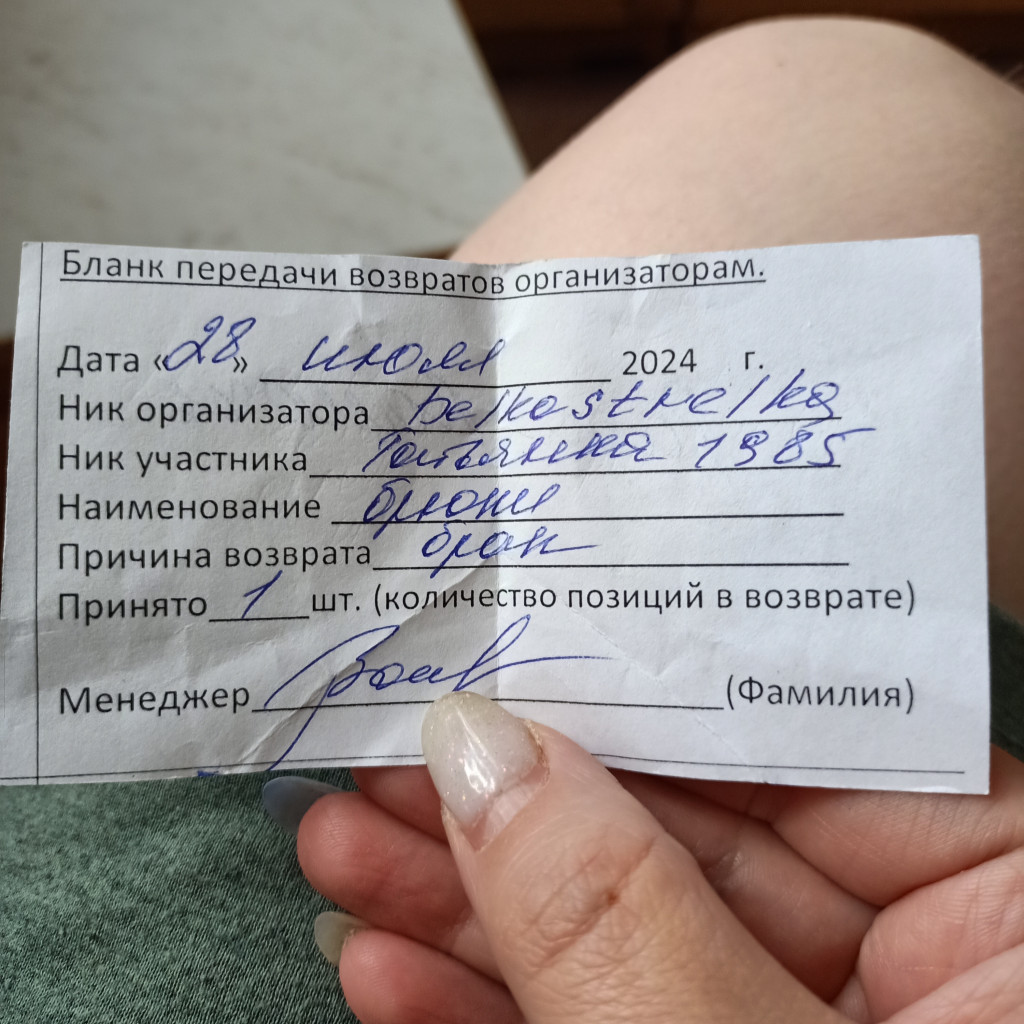 Бланк передачи возвратов организаторам.
Дата «28» июля 2024 г.
Ник организатора belkastrelka
Ник участника Татьянка 1985
Наименование брюки
Причина возврата брак
Принято 1 шт. (количество позиций в возврате)
Менеджер (Фамилия)